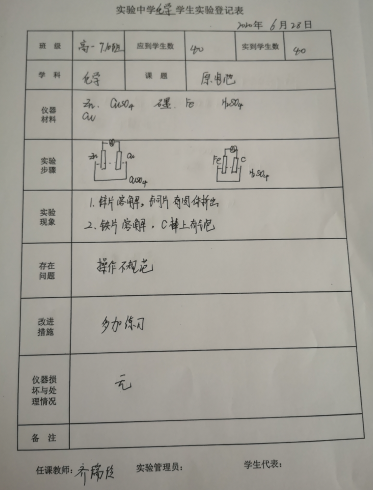 实验中学化学学生实验登记表
2020年 6月 28日
班 级 高一 应到学生数 40 实到学生数 40
学 科 化学 课 题 原电池
仪器材料 Zn. CuSO4 石墨. Fe H2SO4
Cu
实验步骤 Zn Cu CuSO4 Fe C H2SO4
实验现象 1. 锌片溶解, 铜片有固体析出
2. 铁片溶解, C棒上有气泡
存在问题 操作不规范
改进措施 多加练习
仪器损坏与处理情况 无
备 注
任课教师: 齐瑞 实验管理员: 学生代表: